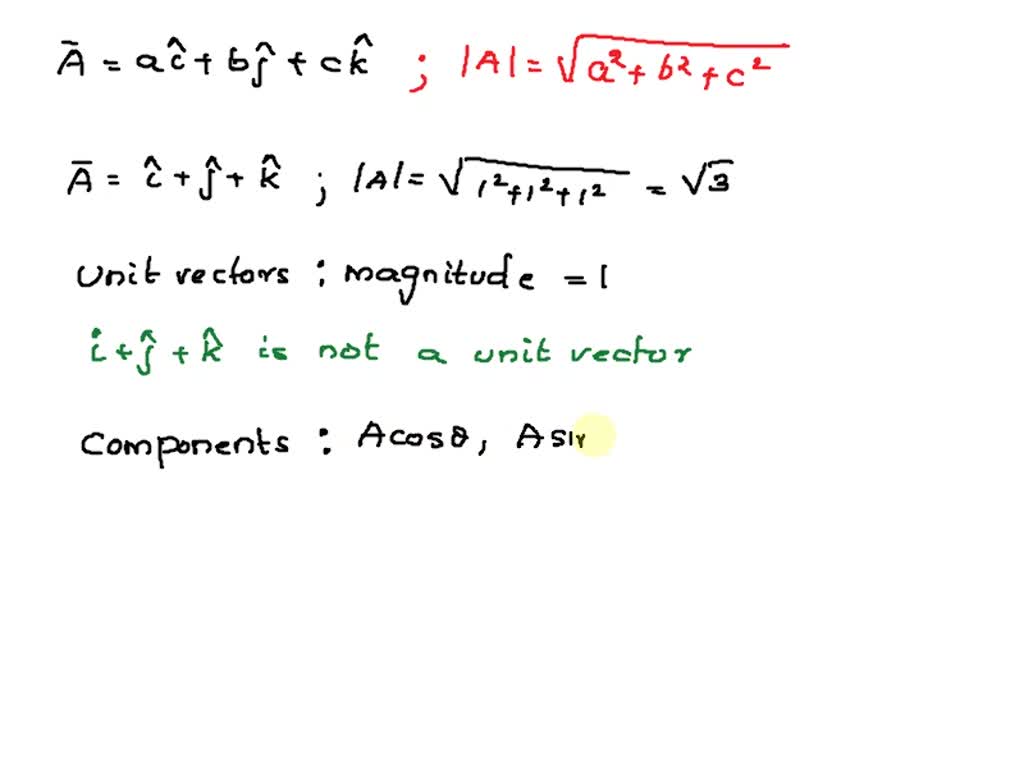 Ā = aî + bĵ + ck̂ ; |A| = √(a² + b² + c²)
Ā = î + ĵ + k̂ ; |A| = √(1² + 1² + 1²) = √3
Unit vectors : magnitude = 1
î + ĵ + k̂ is not a unit vector
Components : A cosθ, A